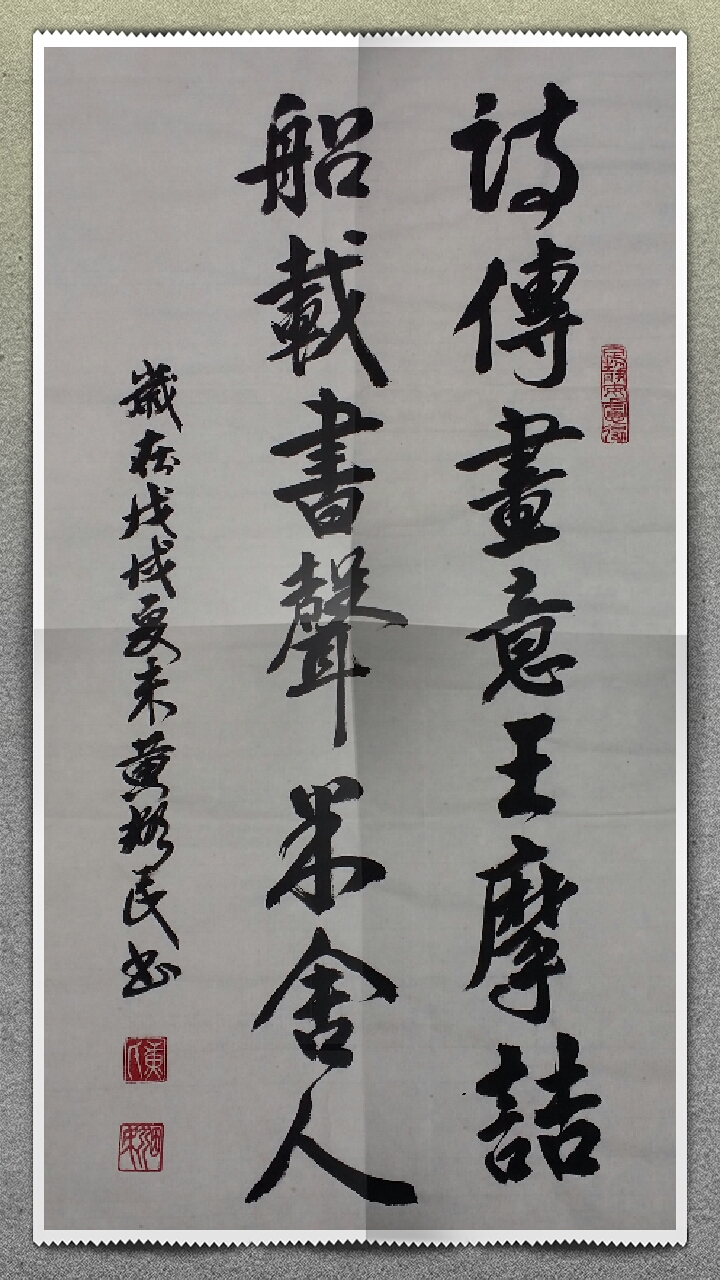 詩傳畫意王摩詰
船載書聲米舍人
歲在戊戌夏末黃樹民书